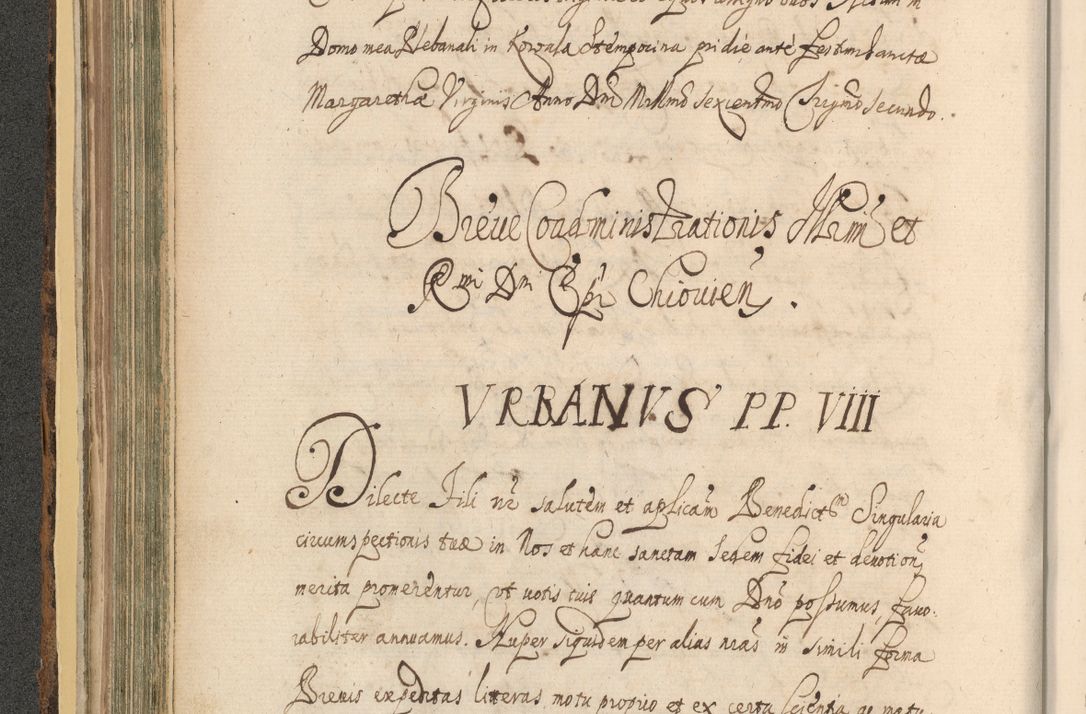 Domo mea Plebanali in Korona Stempocina pridie ante festum Sanctæ
Margarethæ Virginis Anno Dni Millmo sexcentmo Trigmo secundo.
Breue Coadministrationis Illrmi et
Rmi Dni Epi Chiouien.
VRBANVS PP. VIII
Dilecte Fili nr salutem et aplicam Benedictm Singularia
circumspectionis tuæ in Nos et hanc sanctam Sedem fidei et deuotion
merita promerentur, vt uotis tuis quantum cum Dno possumus, fauo-
rabiliter annuamus. Nuper siquidem per alias nras in simili forma
Breuis expeditas litteras motu proprio et ex certa scientia ac matu